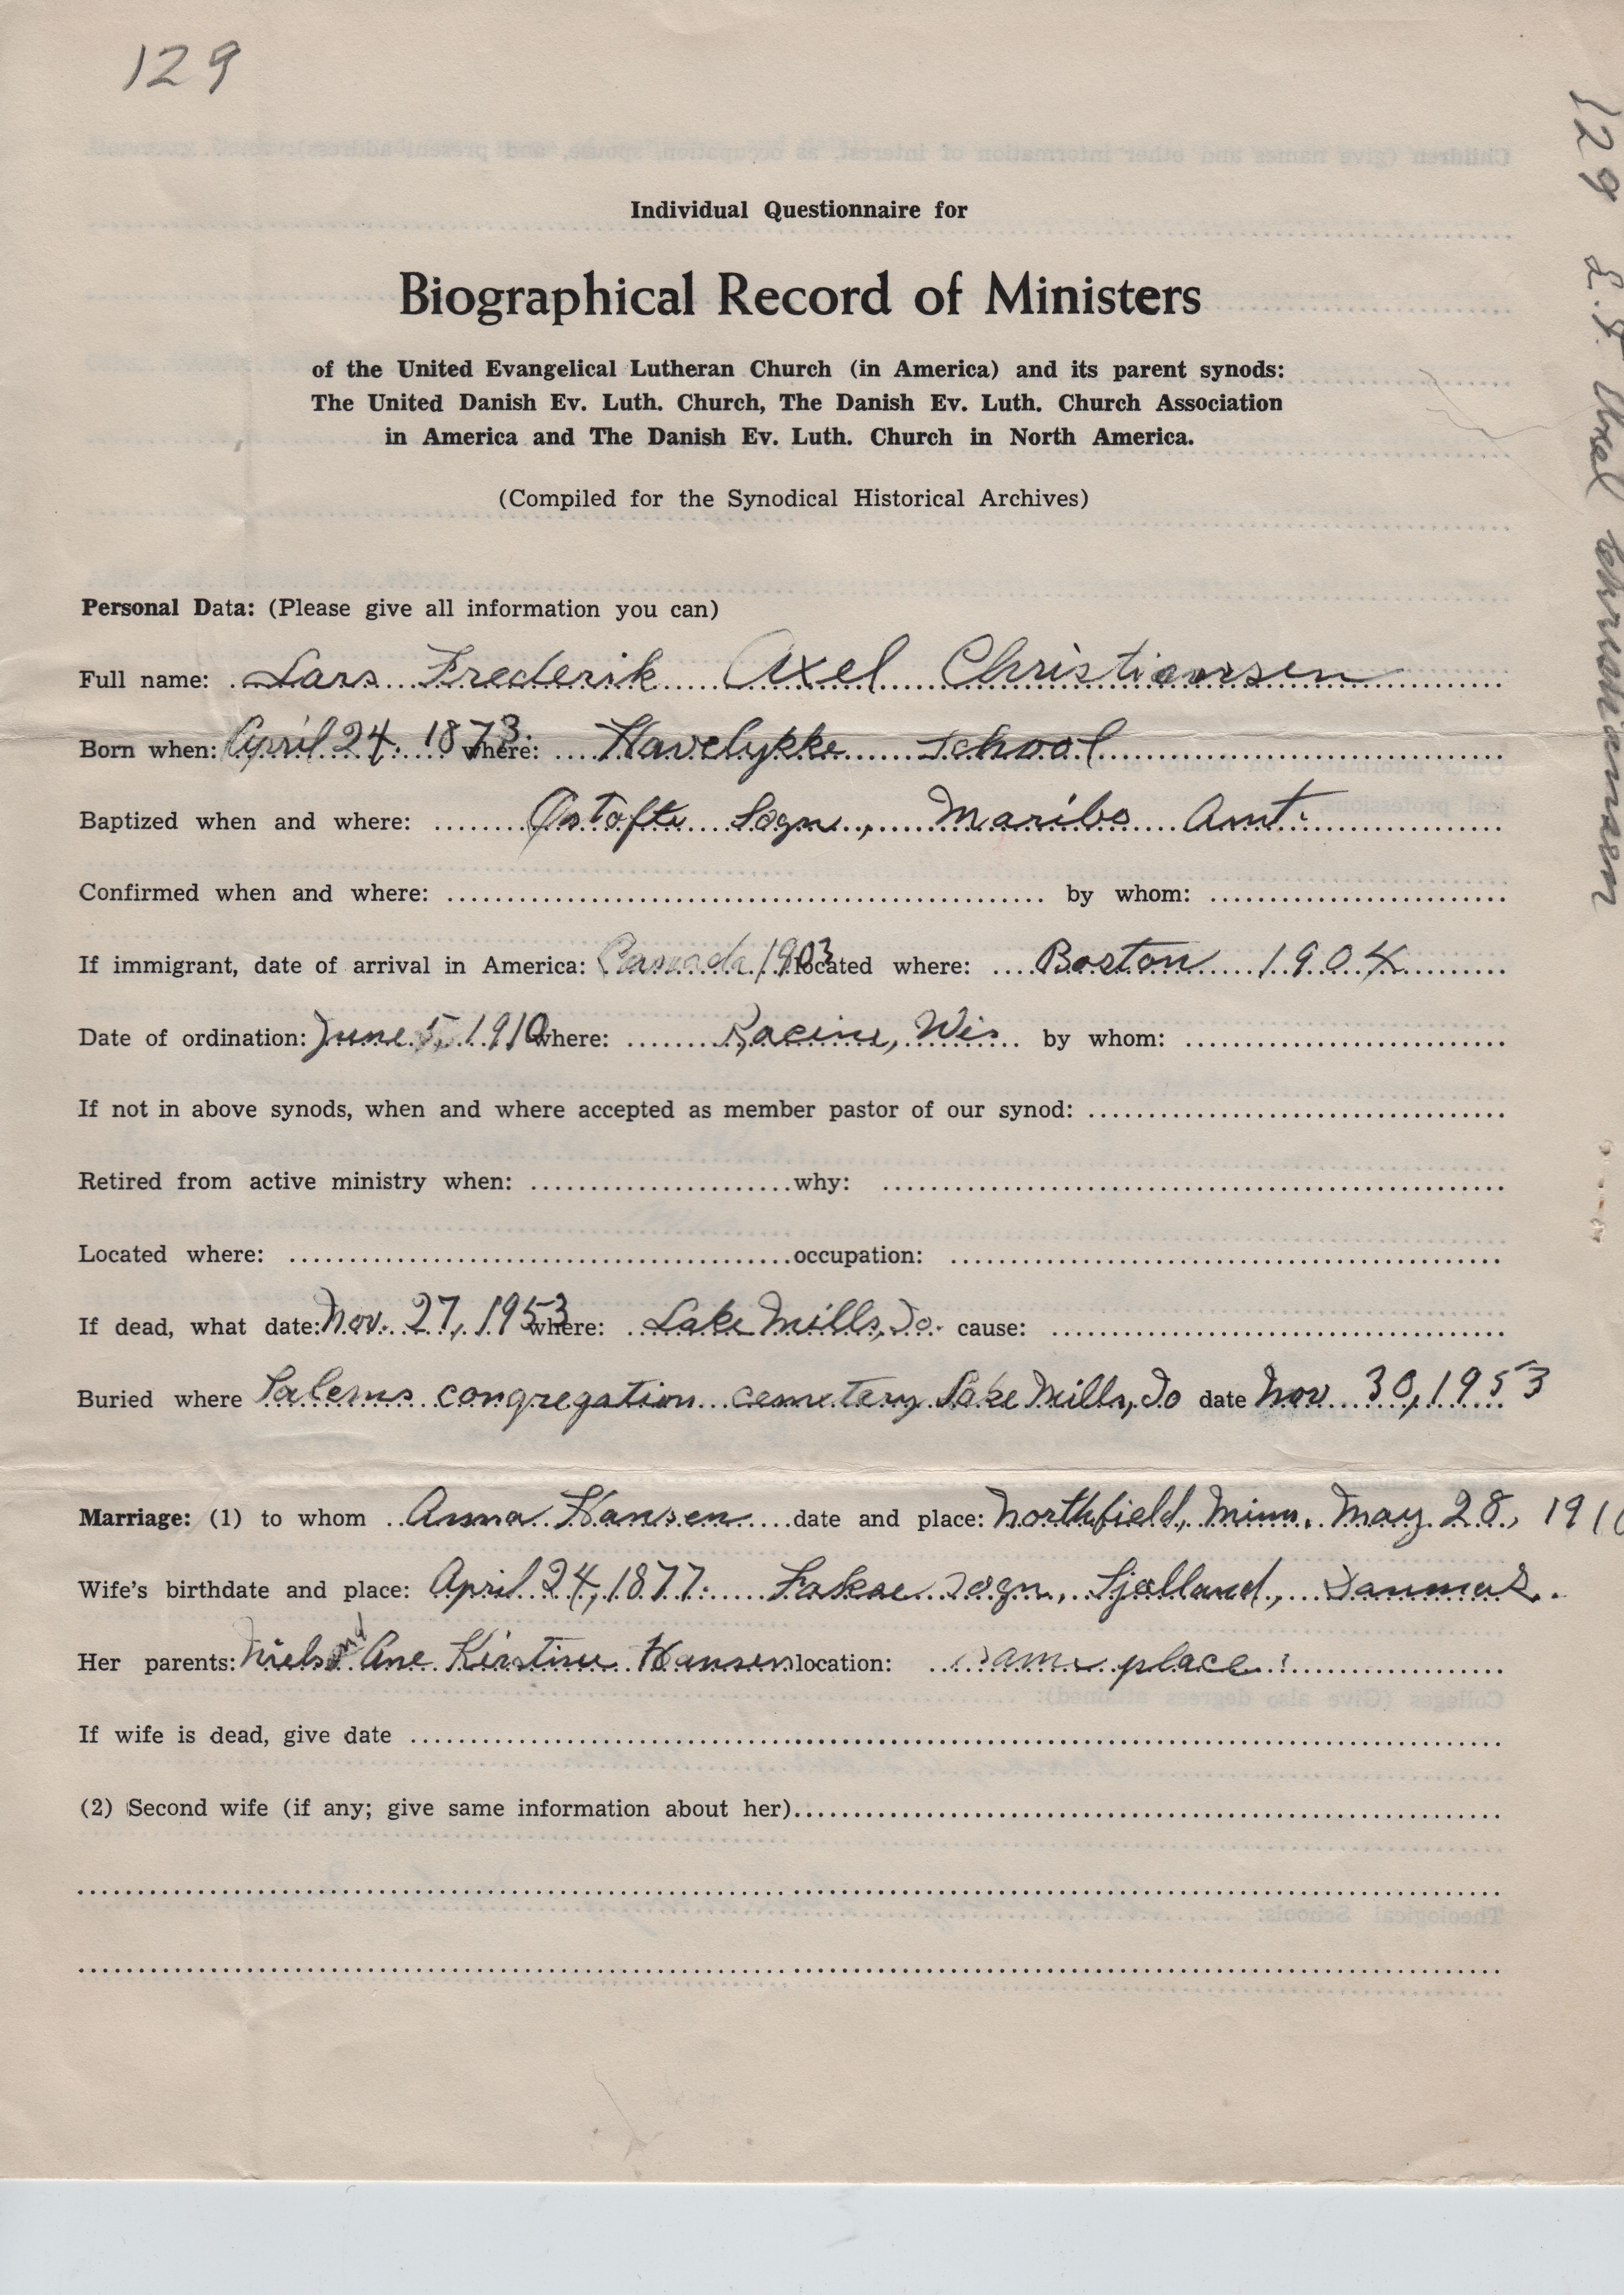 129
Individual Questionnaire for
Biographical Record of Ministers
of the United Evangelical Lutheran Church (in America) and its parent synods:
The United Danish Ev. Luth. Church, The Danish Ev. Luth. Church Association
in America and The Danish Ev. Luth. Church in North America.
(Compiled for the Synodical Historical Archives)
Personal Data: (Please give all information you can)
Full name: Lars Frederik Axel Christiansen
Born when: April 24. 1873. where: Havelykke School
Baptized when and where: Østofte Sogn, Maribo Amt.
Confirmed when and where: by whom:
If immigrant, date of arrival in America: Canada 1903 located where: Boston 1904
Date of ordination: June 5, 1910 where: Racine, Wis by whom:
If not in above synods, when and where accepted as member pastor of our synod:
Retired from active ministry when: why:
Located where: occupation:
If dead, what date: Nov. 27, 1953 where: Lake Mills, Io. cause:
Buried where Salems congregation cemetery Lake Mills, Io date Nov 30, 1953
Marriage: (1) to whom Anna Hansen date and place: Northfield, Minn. May 28, 1910
Wife's birthdate and place: April 24, 1877. Sogn, Sjælland, Danmark.
Her parents: Niels and Ane Kirstine Hansen location: same place
If wife is dead, give date
(2) Second wife (if any; give same information about her)
129 L. F. Axel Christiansen